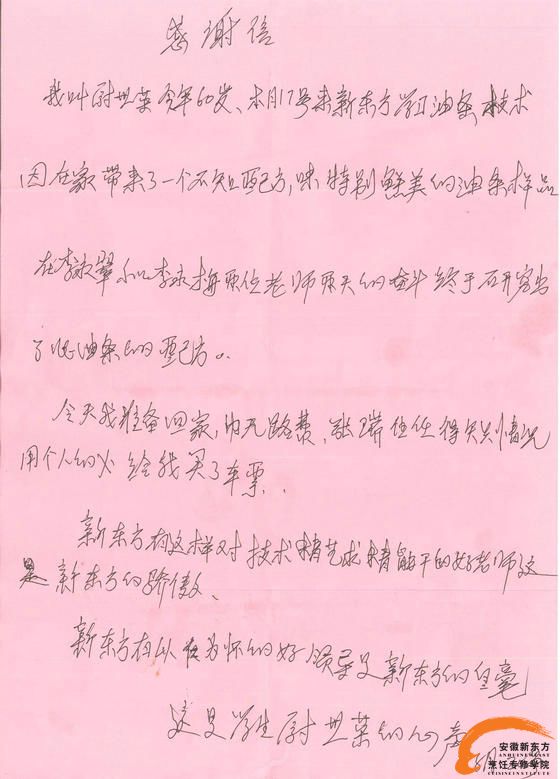 感谢信
我叫尉世菜今年60岁、本月17号来新东方学习油条技术
因在家带来了一个不知配方,味特别鲜美的油条样品
在李永 和李永梅两位老师两天的奋斗终于研究出
了此油条的配方。
今天我准备回家,因无路费,张瑞主任得知情况
用个人的 给我买了车票.
新东方有这样对技术精艺求精能干的好老师这
是新东方的骄傲、
新东方有以 为怀的好领导是新东方的自豪
这是学生尉世菜的心声
安徽新东方
烹饪专修学院